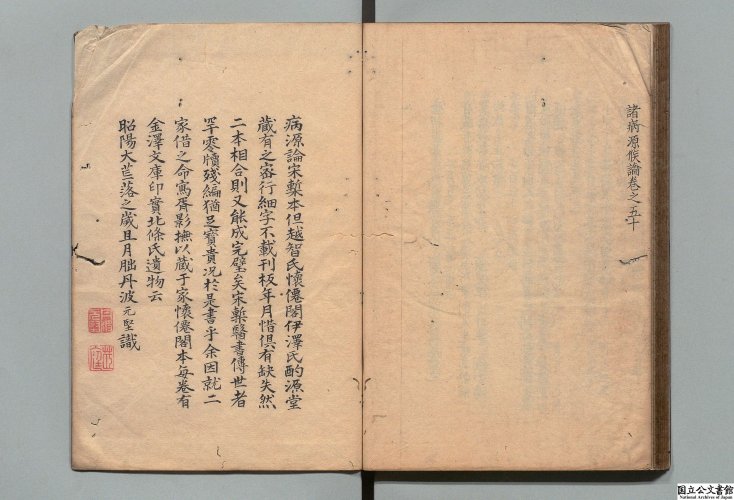 諸病源候論卷之五十
病源論宋槧本但越智氏懷僊閣伊澤氏酌源堂
藏有之密行細字不載刊板年月惜俱有缺失然
二本相合則又能成完璧矣宋槧醫書傳世者
罕零牘殘編猶足寶貴況於是書乎余因就二
家借之命寫胥影撫以藏于家懷僊閣本每卷有
金澤文庫印實北條氏遺物云
昭陽大荒落之歲且月朏丹波元堅識
国立公文書館
National Archives of Japan